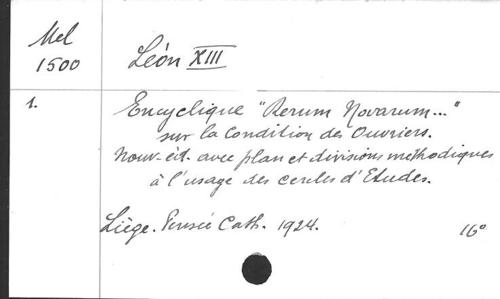 Mel
1500
Léon XIII
1.
Encyclique "Rerum Novarum..."
sur la Condition des Ouvriers.
Nouv. éd. avec plan et divisions méthodiques
à l'usage des cercles d'Etudes.
Liège. Pensée Cath. 1924. 16°